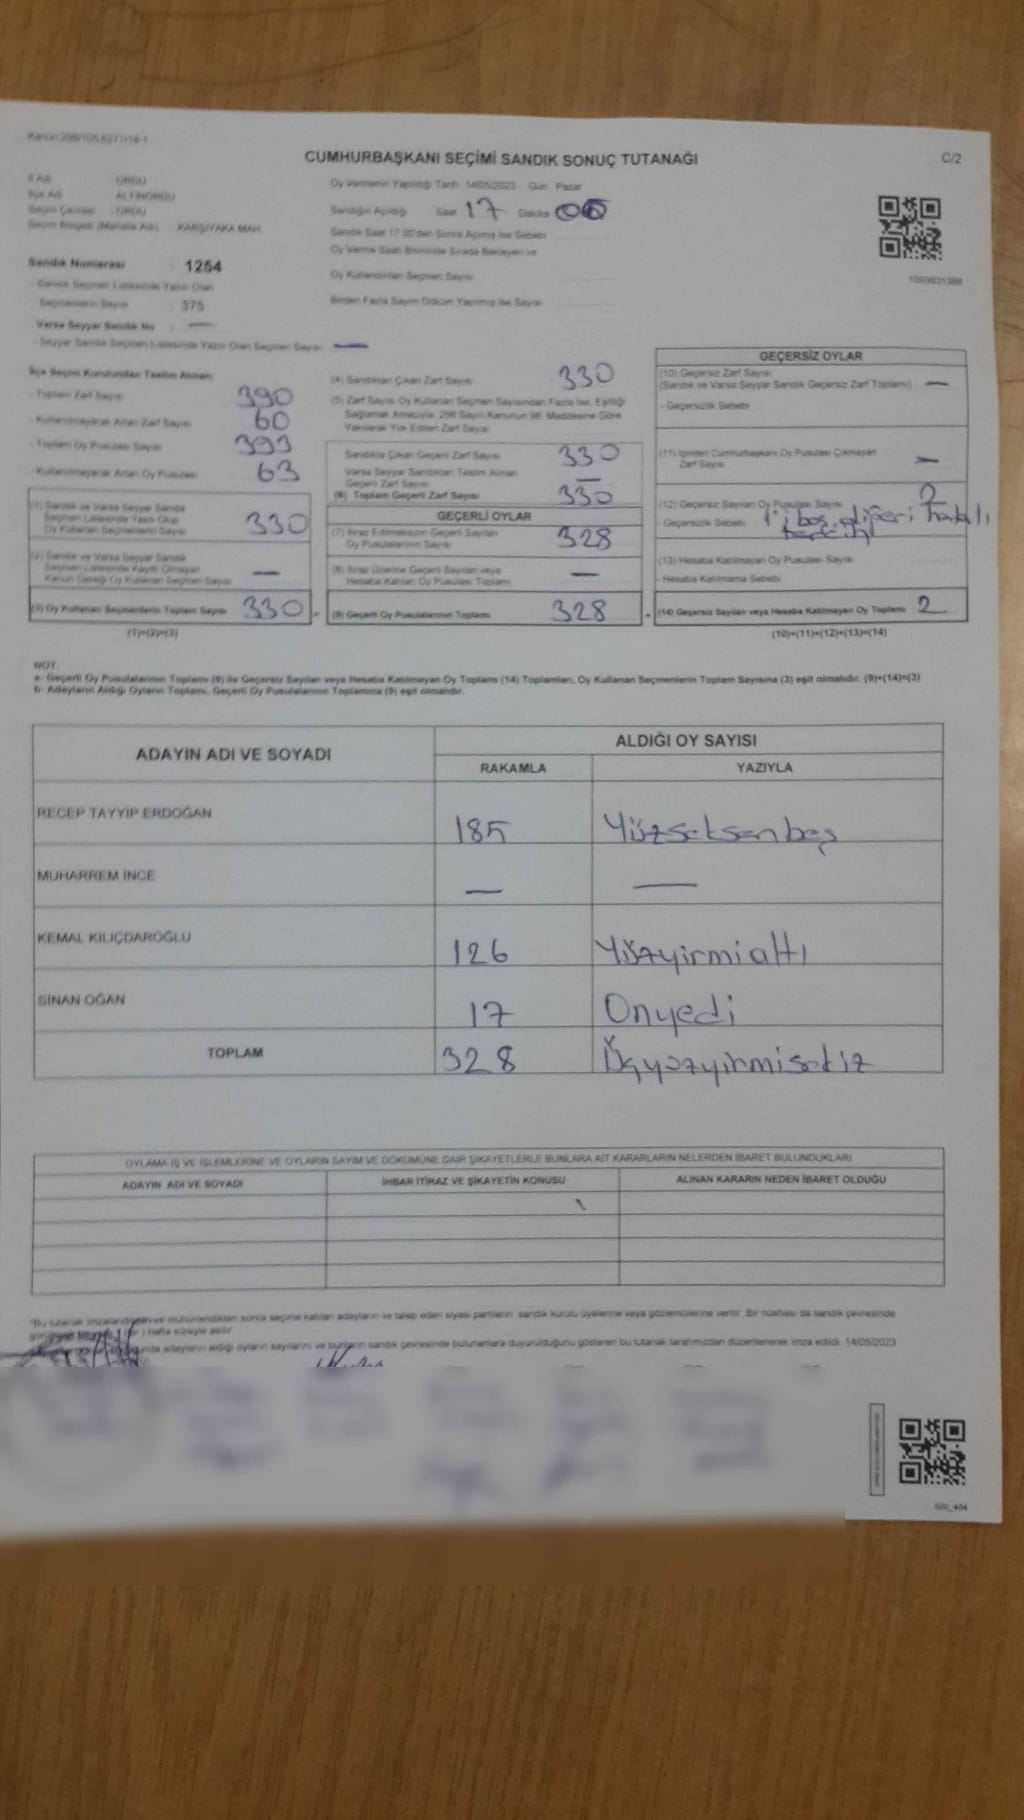 Kanun:298/105,6271/18-1
CUMHURBAŞKANI SEÇİMİ SANDIK SONUÇ TUTANAĞI
C/2
İl Adı : ORDU
İlçe Adı : ALTINORDU
Seçim Çevresi : ORDU
Seçim Bölgesi (Mahalle Adı) : KARŞIYAKA MAH.
Oy Vermenin Yapıldığı Tarih: 14/05/2023 Gün: Pazar
Sandığın Açıldığı Saat 17 Dakika
Sandık Saat 17:00'den Sonra Açılmış İse Sebebi
Oy Verme Saati Bitiminde Sırada Bekleyen ve
Oy Kullandırılan Seçmen Sayısı
Birden Fazla Sayım Döküm Yapılmış İse Sayısı
Sandık Numarası : 1254
- Sandık Seçmen Listesinde Yazılı Olan
Seçmenlerin Sayısı : 375
Varsa Seyyar Sandık No : —
- Seyyar Sandık Seçmen Listesinde Yazılı Olan Seçmen Sayısı: —
İlçe Seçim Kurulundan Teslim Alınan;
- Toplam Zarf Sayısı 390
- Kullanılmayarak Artan Zarf Sayısı 60
- Toplam Oy Pusulası Sayısı 393
- Kullanılmayarak Artan Oy Pusulası 63
(1) Sandık ve Varsa Seyyar Sandık
Seçmen Listesinde Yazılı Olup
Oy Kullanan Seçmenlerin Sayısı 330
(2) Sandık ve Varsa Seyyar Sandık
Seçmen Listesinde Kayıtlı Olmayan
Kanun Gereği Oy Kullanan Seçmen Sayısı —
(3) Oy Kullanan Seçmenlerin Toplam Sayısı 330
(1)+(2)=(3)
(4) Sandıktan Çıkan Zarf Sayısı 330
(5) Zarf Sayısı Oy Kullanan Seçmen Sayısından Fazla İse, Eşitliği
Sağlamak Amacıyla, 298 Sayılı Kanunun 98. Maddesine Göre
Yakılarak Yok Edilen Zarf Sayısı
Sandıkta Çıkan Geçerli Zarf Sayısı 330
Varsa Seyyar Sandıktan Teslim Alınan
Geçerli Zarf Sayısı —
(6) Toplam Geçerli Zarf Sayısı 330
GEÇERLİ OYLAR
(7) İtiraz Edilmeksizin Geçerli Sayılan
Oy Pusulalarının Sayısı 328
(8) İtiraz Üzerine Geçerli Sayılan veya
Hesaba Katılan Oy Pusulası Toplamı —
(9) Geçerli Oy Pusulalarının Toplamı 328
GEÇERSİZ OYLAR
(10) Geçersiz Zarf Sayısı
(Sandık ve Varsa Seyyar Sandık Geçersiz Zarf Toplamı) —
- Geçersizlik Sebebi
(11) İçinden Cumhurbaşkanı Oy Pusulası Çıkmayan
Zarf Sayısı —
(12) Geçersiz Sayılan Oy Pusulası Sayısı 2
- Geçersizlik Sebebi 1'i boş diğeri hatalı
tercihli
(13) Hesaba Katılmayan Oy Pusulası Sayısı
- Hesaba Katılmama Sebebi
(14) Geçersiz Sayılan veya Hesaba Katılmayan Oy Toplamı 2
(10)+(11)+(12)+(13)=(14)
NOT:
a- Geçerli Oy Pusulalarının Toplamı (9) ile Geçersiz Sayılan veya Hesaba Katılmayan Oy Toplamı (14) Toplamları, Oy Kullanan Seçmenlerin Toplam Sayısına (3) eşit olmalıdır. (9)+(14)=(3)
b- Adayların Aldığı Oyların Toplamı, Geçerli Oy Pusulalarının Toplamına (9) eşit olmalıdır.
ADAYIN ADI VE SOYADI
ALDIĞI OY SAYISI
RAKAMLA YAZIYLA
RECEP TAYYİP ERDOĞAN 185 Yüzseksenbeş
MUHARREM İNCE — —
KEMAL KILIÇDAROĞLU 126 Yüzyirmialtı
SİNAN OĞAN 17 Onyedi
TOPLAM 328 Üçyüzyirmisekiz
OYLAMA İŞ VE İŞLEMLERİNE VE OYLARIN SAYIM VE DÖKÜMÜNE DAİR ŞİKAYETLERLE BUNLARA AİT KARARLARIN NELERDEN İBARET BULUNDUKLARI
ADAYIN ADI VE SOYADI İHBAR İTİRAZ VE ŞİKAYETİN KONUSU ALINAN KARARIN NEDEN İBARET OLDUĞU
"Bu tutanak imzalandıktan ve mühürlendikten sonra seçime katılan adayların ve talep eden siyasi partilerin sandık kurulu üyelerine veya gözlemcilerine verilir. Bir nüshası da sandık çevresinde
hafta süreyle asılır.
adayların aldığı oyların sayılarını ve bunların sandık çevresinde bulunanlara duyurulduğunu gösteren bu tutanak tarafımızdan düzenlenerek imza edildi. 14/05/2023